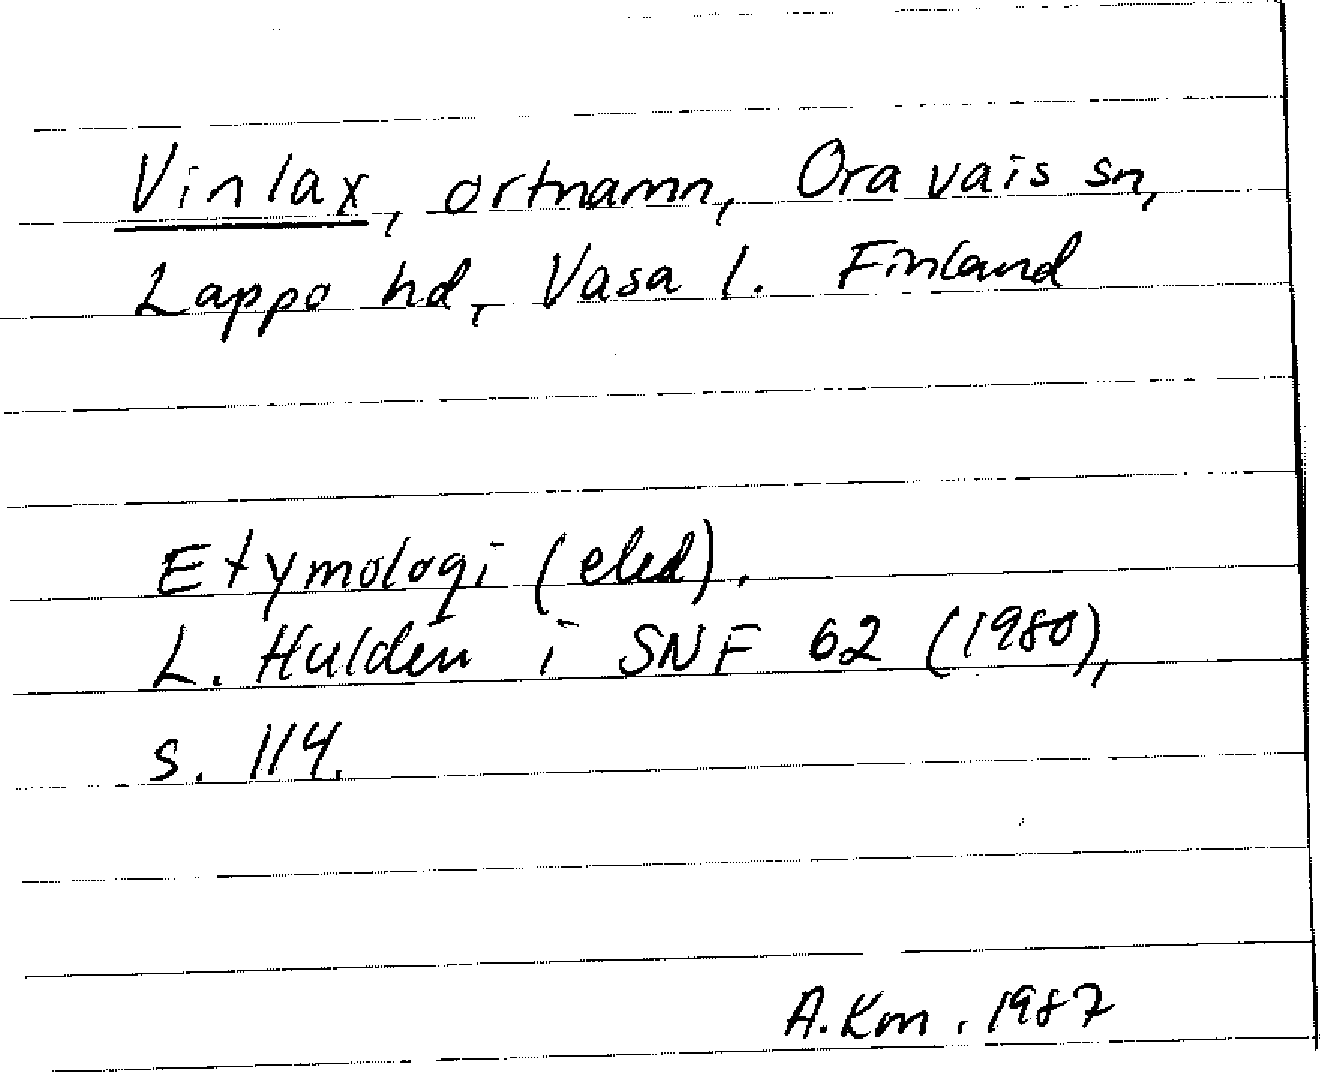 Vinlax, ortnamn, Oravais sn,
Lappo hd, Vasa l. Finland
Etymologi (eled).
L. Huldén i SNF 62 (1980),
s. 114.
A. Km. 1987